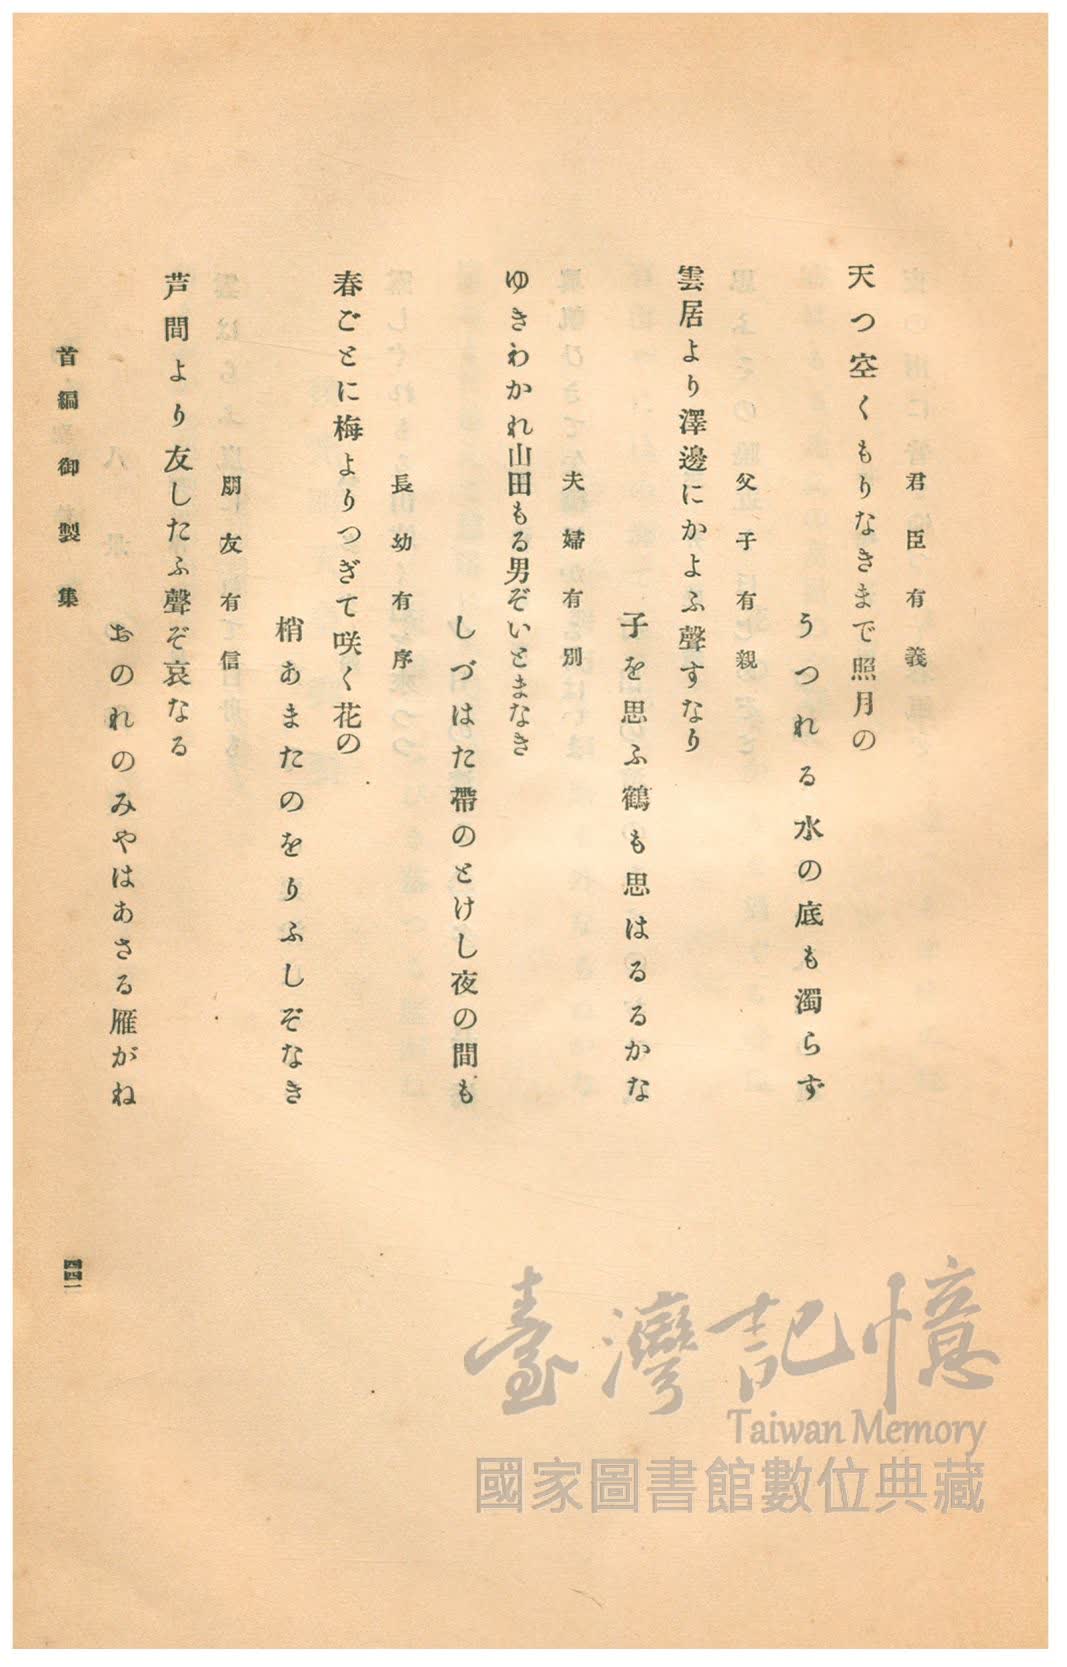 君臣有義
天つ空くもりなきまで照月の
うつれる水の底も濁らず
父子有親
雲居より澤邊にかよふ聲すなり
子を思ふ鶴も思はるるかな
夫婦有別
ゆきわかれ山田もる男ぞいとまなき
しづはた帶のとけし夜の間も
長幼有序
春ごとに梅よりつぎて咲く花の
梢あまたのをりふしぞなき
朋友有信
芦間より友したふ聲ぞ哀なる
おのれのみやはあさる雁がね
首編御製集
四四一
臺灣記憶
Taiwan Memory
國家圖書館數位典藏